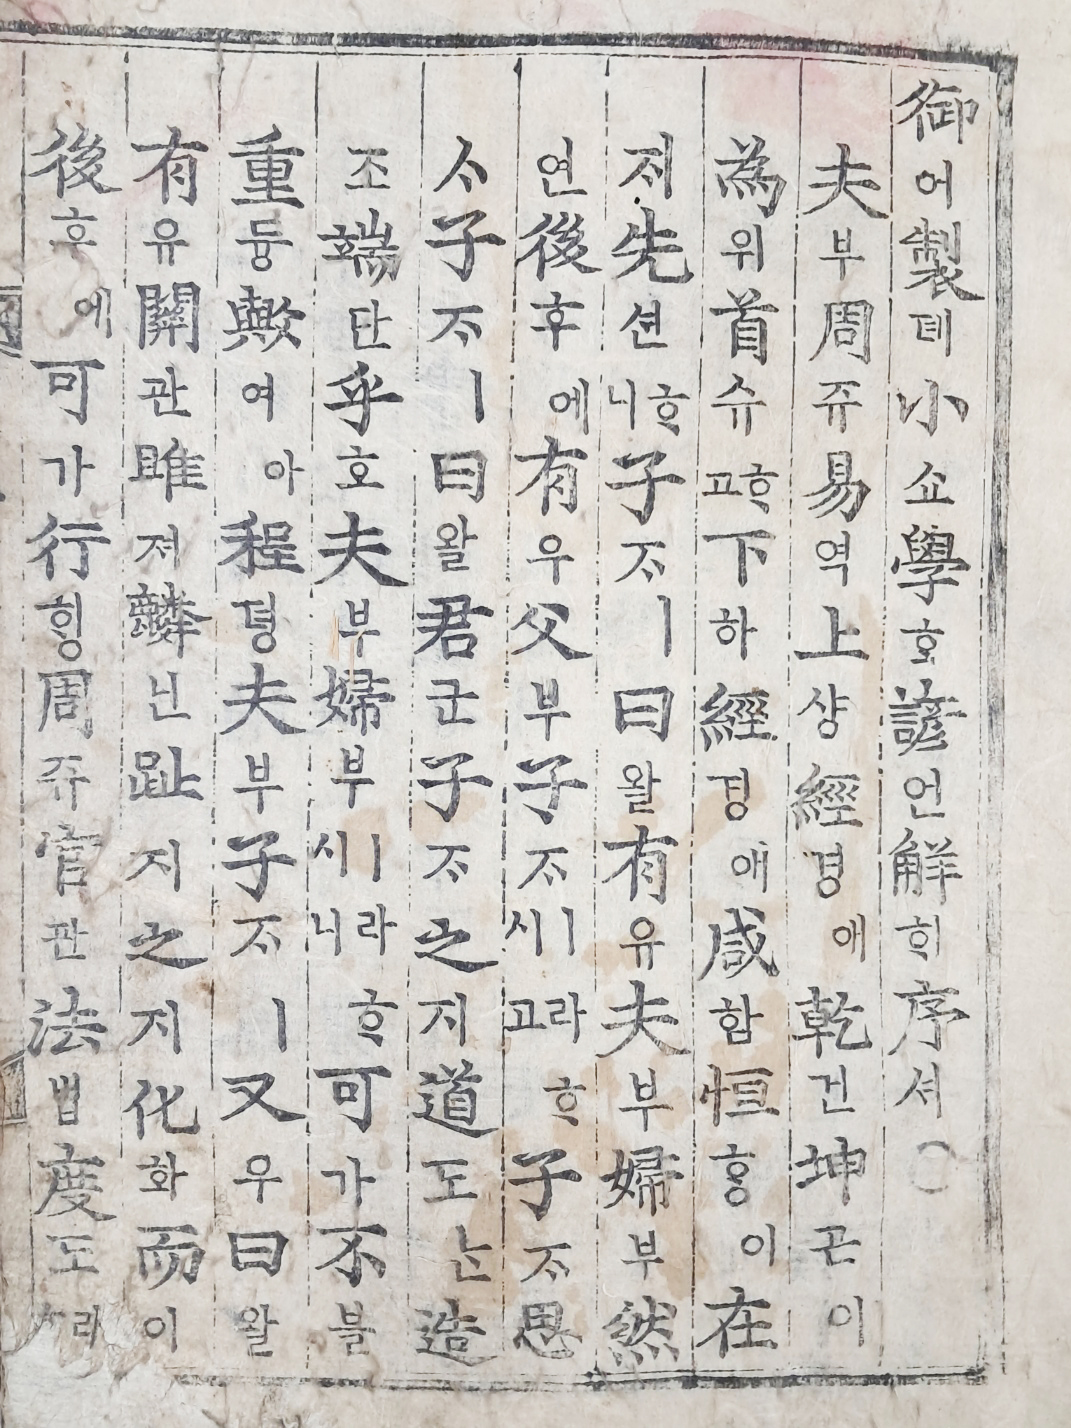 御어製뎨小쇼學ᄒᆞᆨ諺언解ᄒᆡ序셔○
夫부周쥬易역上샹經경애乾건坤곤이
為위首슈ᄒᆞ고下하經경애咸함恒ᄒᆞᆼ이在
ᄌᆡ先션ᄒᆞ니子ᄌᆞㅣ曰왈有유夫부婦부然
연後후에有우父부子ᄌᆞㅣ라ᄒᆞ시고子ᄌᆞ思
ᄉᆞ子ᄌᆞㅣ曰왈君군子ᄌᆞ之지道도ᄂᆞᆫ造
조端단乎호夫부婦부ㅣ라ᄒᆞ시니可가不블
重듕歟여아程뎡夫부子ᄌᆞㅣ又우曰왈
有유關관雎져麟닌趾지之지化화而이
後후에可가行ᄒᆡᆼ周쥬官관法법度도라